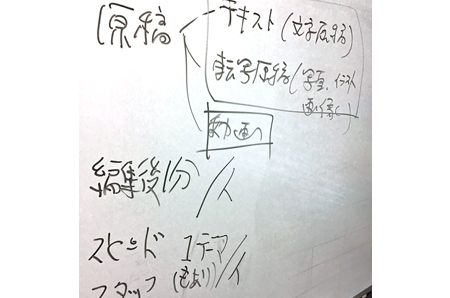 原稿 テキスト(文字原稿)
転写原稿(写真、イラスト
動画
編集後1分/人
スピード 1テーマ/人
スタッフ